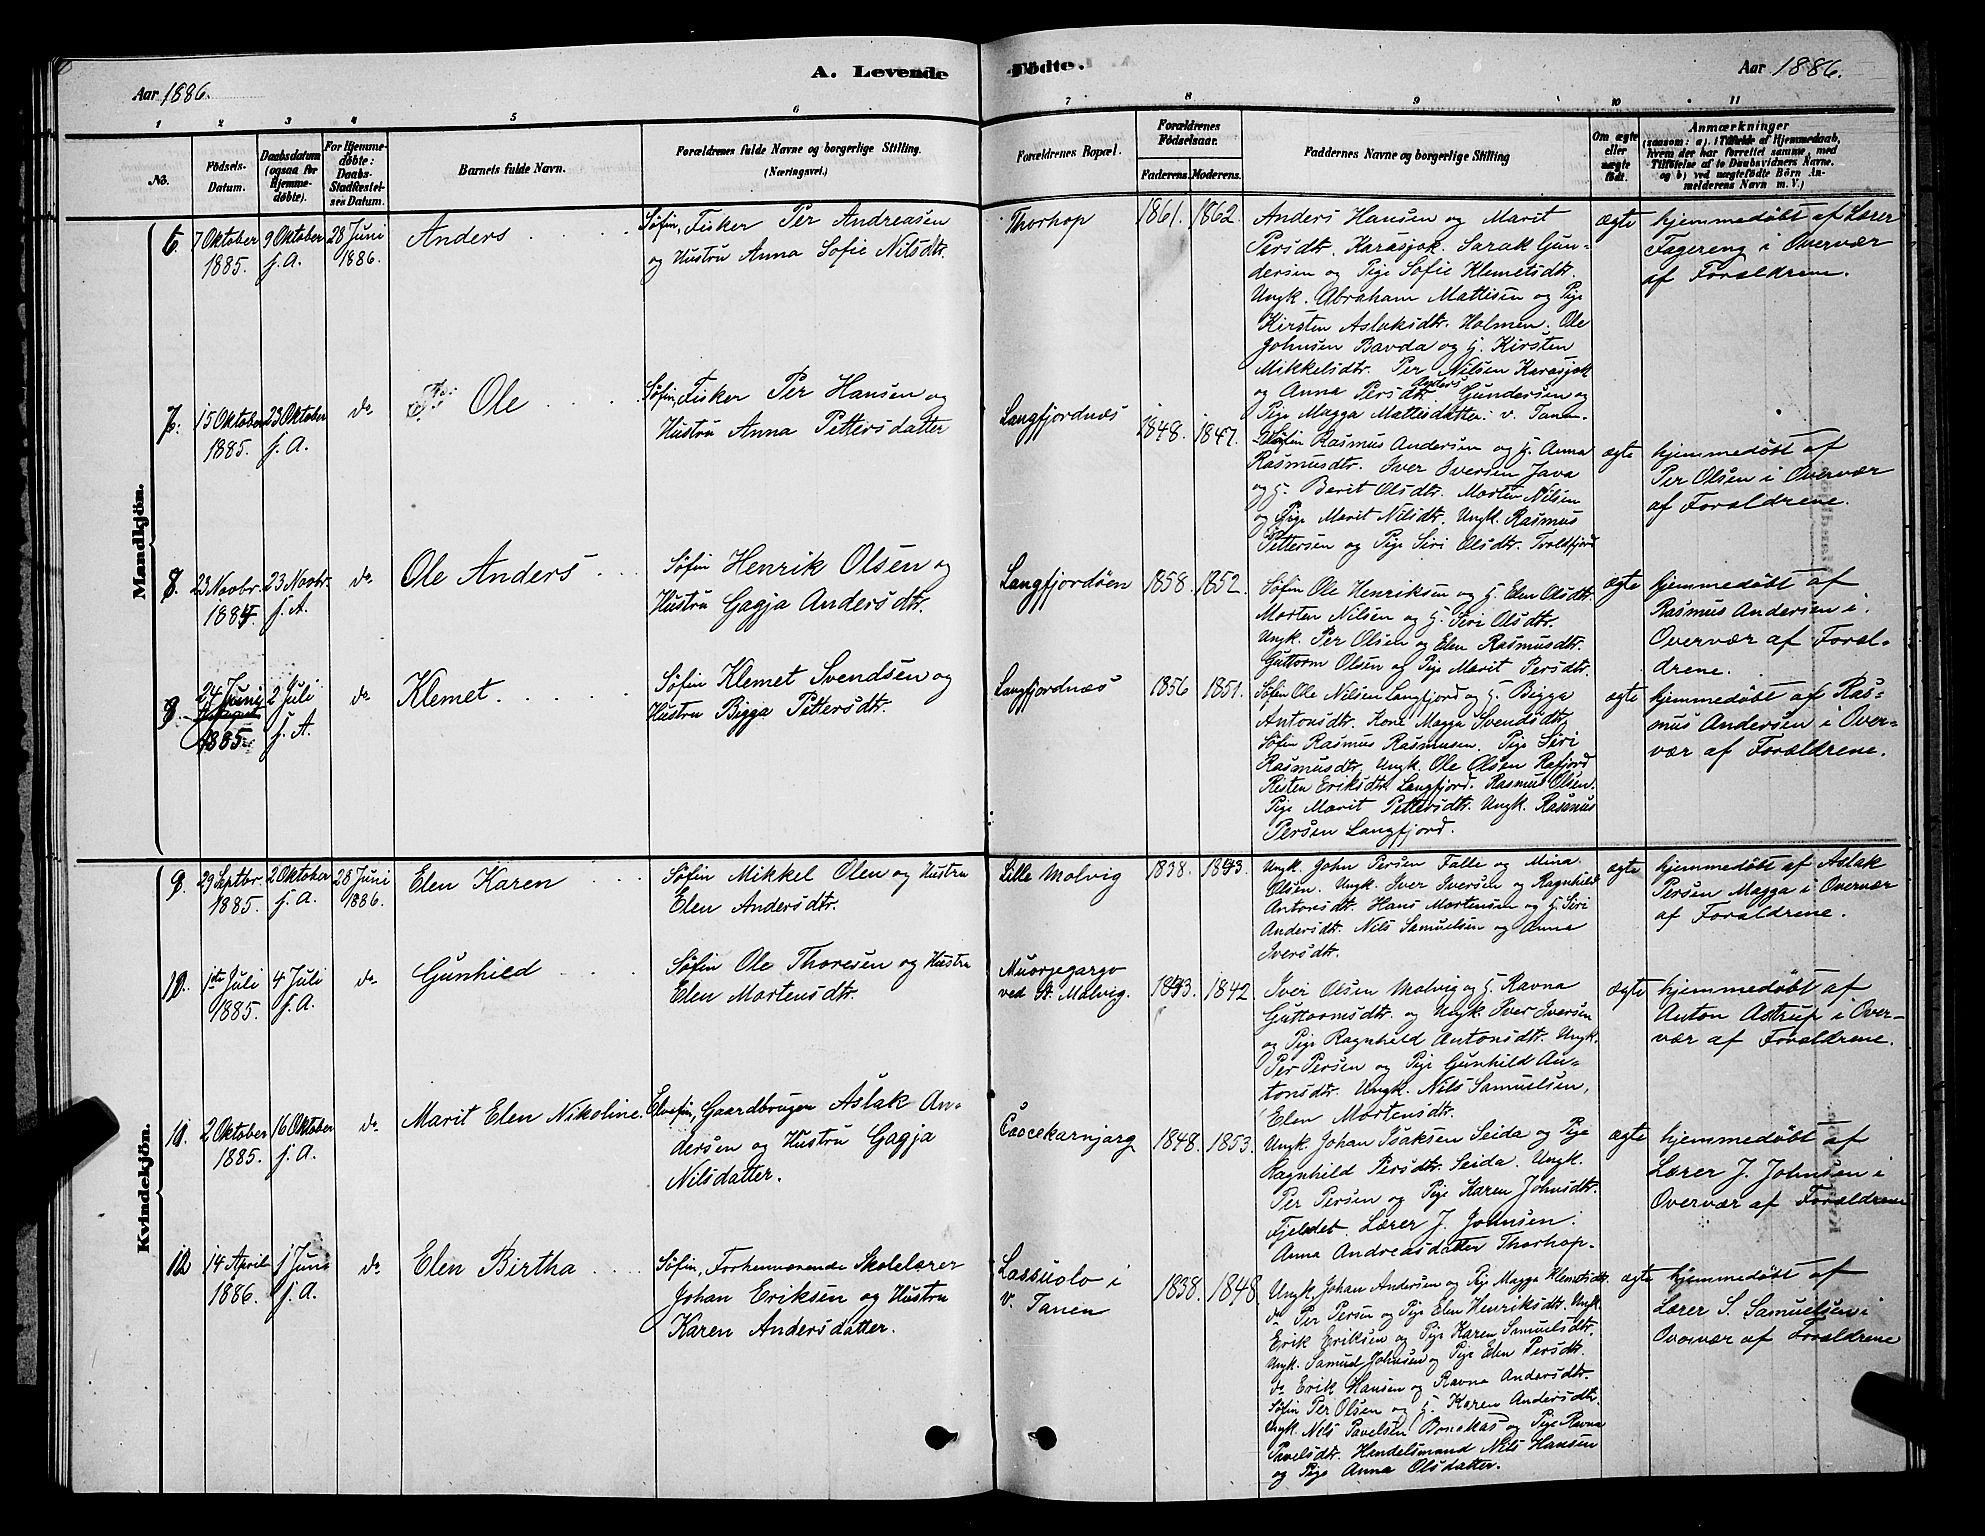 A. Levende Födte.
Aar 1886.
Aar 1886.
1 2 3 4 5 6 7 8 9 10 11
No.
Födsels-
Datum.
Daabsdatum
(ogsaa for
Hjemme-
döbte).
For Hjemme-
döbte:
Daabs-
Stadfæstel-
ses Datum.
Barnets fulde Navn.
Forældrenes fulde Navne og borgerlige Stilling.
(Næringsvei.)
Forældrenes Bopæl.
Forældrenes
Födselsaar.
Faderens. Moderens.
Faddernes Navne og borgerlige Stilling
Om ægte
eller
uægte
födt.
Anmærkninger
(saasom: a). i Tilfælde af Hjemmedaab,
hvem der har forrettet samme, med
Tilföielse af to Daabsvidners Navne.
og b) ved uægtefödte Börn An-
melderens Navn m. V.)
Mandkjön.
6. 7 Oktober 9 Oktober 28 Juni
1885. f. A. 1886.
Anders
Søfin, Fisker Per Andreasen
og Hustru Anna Sofie Nilsdtr.
Thorhop
1861. 1862.
Anders Hansen og Marit
Persdtr. Karasjok. Sarak Gun-
dersen og Pige Sofie Klemetsdtr.
Ungk. Abraham Mattisen og Pige
Kirsten Aslaksdtr. Holmen. Ole
Johnsen Bavda og H. Kirsten
Mikkelsdtr. Per Nilsen Karasjok
og Anna Persdtr. Anders Gundersen og
Pige Magga Mattisdatter. v. Tanen
ægte
hjemmedøbt af Lærer
Fagereng i Overvær
af Forældrene.
7. 15 Oktober 23 Oktober do
1885. f. A.
Ole
Søfin, Fisker Per Hansen og
Hustru Anna Pettersdatter
Langfjordnæs
1848. 1847.
Søfin Rasmus Andersen og H. Anna
Rasmusdtr. Iver Iversen Java
og H. Berit Olsdtr. Morten Nilsen
og Pige Marit Nilsdtr. Ungk. Rasmus
Pettersen og Pige Siri Olsdtr. Troldfjord
ægte
hjemmedøbt af
Per Olsen i Overvær
af Forældrene.
8. 23 Novbr. 23 Novbr. do
1884. f. A.
Ole Anders
Søfin Henrik Olsen og
Hustru Gagja Andersdtr.
Langfjordøen
1858. 1852.
Søfin Ole Henriksen og H. Elen Olsdtr.
Morten Nilsen og H. Siri Olsdtr.
Ungk. Per Olsen og Elen Rasmusdtr.
Guttorm Olsen og Pige Marit Persdtr.
ægte
hjemmedøbt af
Rasmus Andersen i
Overvær af Foræl-
drene.
8. 24 Juni 2 Juli do
1885. f. A
Klemet
Søfin Klemet Svendsen og
Hustru Bigga Pettersdtr.
Langfjordnæs
1856 1851.
Søfin Ole Nilsen Langfjord og H. Bigga
Antonsdtr. Kone Magga Svendsdtr.
Søfin Rasmus Rasmusen. Pige Siri
Rasmusdtr. Ungk. Ole Olsen Rafjord
Risten Eriksdtr. Langfjord. Rasmus Olsen.
Pige Marit Pettersdtr. Ungk. Rasmus
Persen Langfjord.
ægte
hjemmedøbt af Ras-
mus Andersen i Over-
vær af Forældrene.
Kvindekjön.
9. 29 Septbr. 2 Oktober 28 Juni
1885. f. A. 1886.
Elen Karen
Søfin Mikkel Olen og Hustru
Elen Andersdtr.
Lille Molvig
1838. 1843.
Ungk. John Persen Falle og Mina
Olsen. Ungk. Iver Iversen og Ragnhild
Antonsdtr. Hans Mortensen og H. Siri
Andersdtr. Nils Samuelsen og Anna
Iversdtr.
ægte
hjemmedøbt af Aslak
Persen Magga i Overvær
af Forældrene.
10. 1ste Juli 4 Juli do
1885. f. A.
Gunhild
Søfin Ole Thoresen og Hustru
Elen Mortensdtr.
Muorjegargo
ved St. Molvig.
1843. 1842.
Iver Olsen Molvig og H. Ravna
Guttormsdtr. og Ungk. Iver Iversen
og Pige Ragnhild Antonsdtr. Ungk.
Per Persen og Pige Gunhild An-
tonsdtr. Ungk. Nils Samuelsen,
Elen Mortensdtr.
ægte
hjemmedøbt af
Anton Astrup i Over-
vær af Forældrene.
11. 2 Oktober 16 Oktober do
1885. f. A.
Marit Elen Nikoline.
Elvefin, Gaardbruger Aslak An-
dersen og Hustru Gagja
Nilsdatter.
Caccekarnjarg
1848. 1853.
Ungk. Johan Isaksen Seida og Pige
Ragnhild Persdtr. Seida. Ungk.
Per Persen og Pige Karen Johnsdtr.
Fjeldet. Lærer J. Johnsen.
Anna Andreasdatter Thorhop.
ægte
hjemmedøbt af
Lærer J. Johnsen i
Overvær af Forældrene
12 14 April 1 Juni do
1886. f. A.
Elen Birtha
Søfin, Forhenværende Skolelærer
Johan Eriksen og Hustru
Karen Andersdatter.
Lassuolo i
v. Tanen
1838. 1848.
Ungk. Johan Andersen og Pige Magga Klemetsdtr.
do Per Persen og Pige Elen Henriksdtr. Ungk.
Erik Eriksen og Pige Karen Samuelsdtr.
Ungk. Samuel Johnsen og Pige Elen Persdtr.
do Erik Hansen og Ravna Andersdtr.
Søfin Per Olsen og H. Karen Andersdtr.
Ungk. Nils Pavelsen Bonakas og Pige Ravna
Pavelsdtr. Handelsmand Nils Hansen
og Pige Anna Olsdatter.
ægte
hjemmedøbt af
Lærer S. Samuelsen i
Overvær af Forældrene